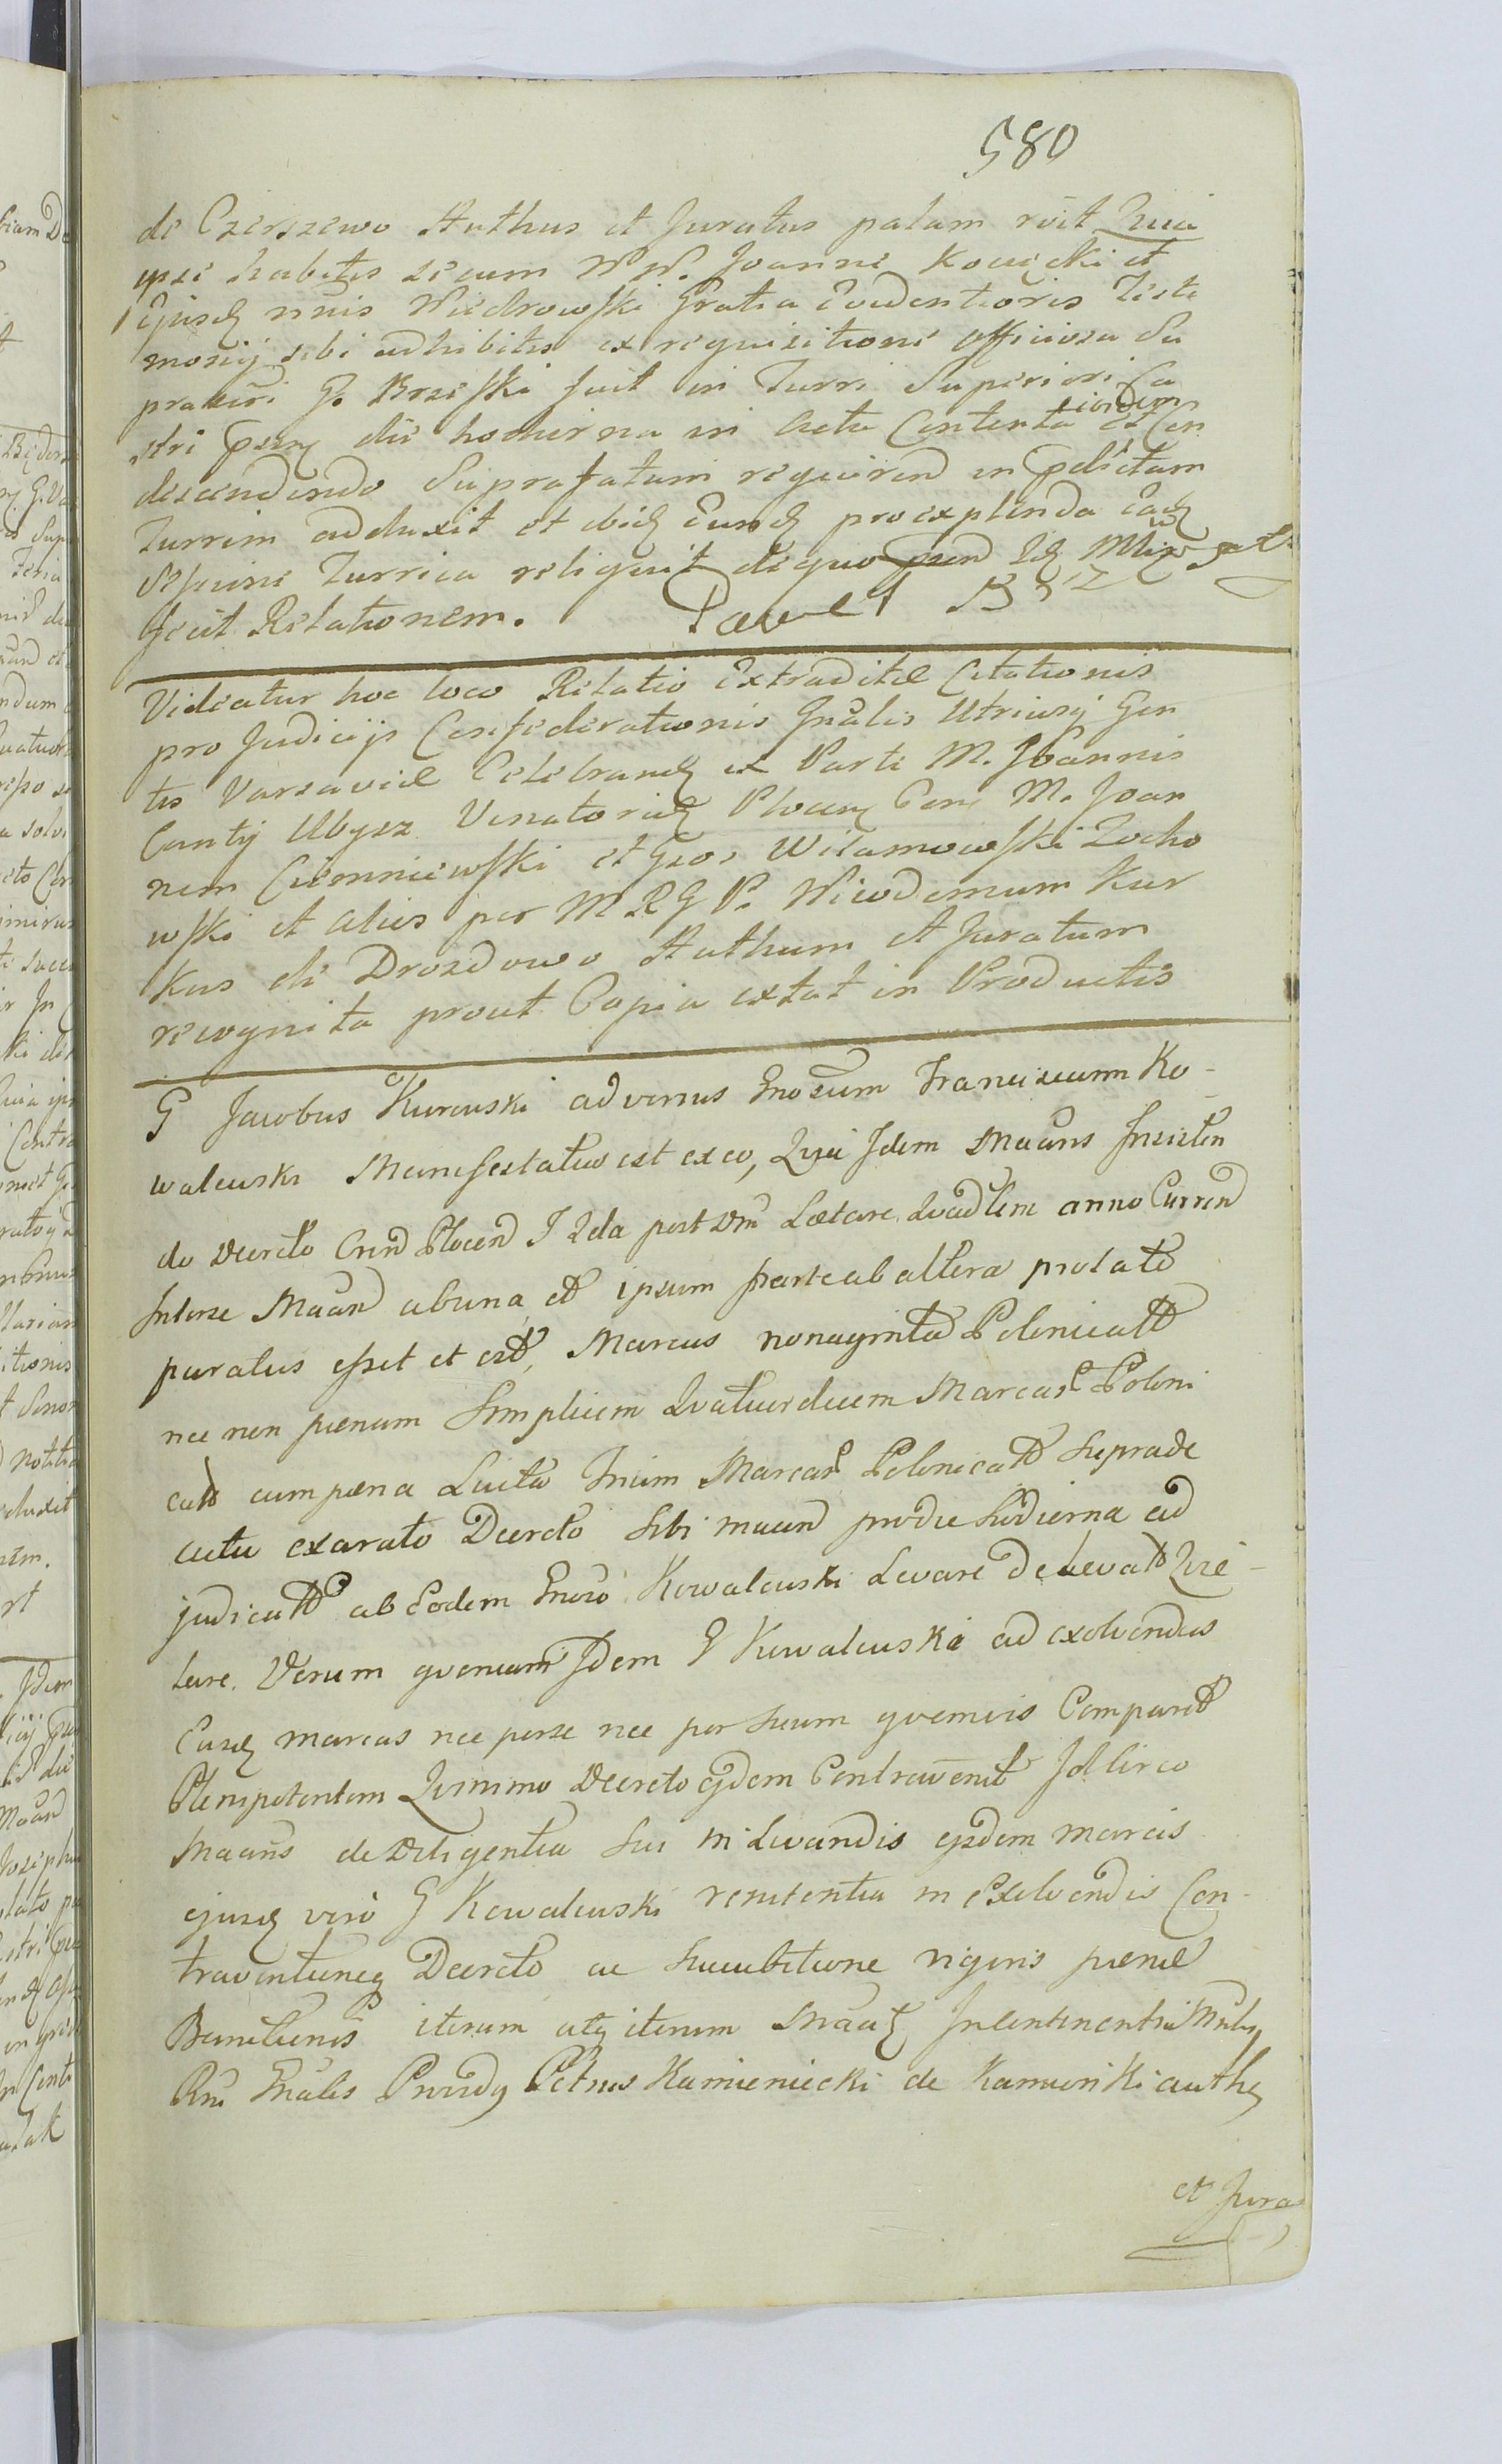 580
de Czerszewo Authus et Juratus palam röit Quia
ipse habitis secum NN. Joanne Kowęcki et
Ejusđ nnis Wiedrowski Gratia Evidentioris Testi
monij sibi adhibitis ex requisitione officiosa Su
pranri G. Brzeski fuit in Turri Superiori Ca
stri die hodierna in Actu Contenta ibidem et Con
descendendo Suprafatum requirend in pdictam
Turrim adduxit et ibid Eund pro explenda ead
Sessione Turrica reliquit de quo Id Mixr
fecit Relationem. Paweł
Videatur hoc loco Relatio Extraditæ Citationis
pro Judicijs Confederationis Gnalis Utriusq Gen
tis Varsaviæ Celebrand ex Parte M. Joannis
Canty Ubysz Venatorid Plocen Cone M. Joan
nem Ciemniewski et Gsos Wilamowski Zocho
wski et alios per M R G P. Nicodemum Kur
kus de Drozdowo Authum et Juratum
recognita prout Copia extat in Productis
G Jacobus Kurowski adversus Gnosum Franciscum Ko-
walewski Manifestatus est ex eo, Quia Idem Maans Insisten
do Decreto Crend Plocend F 2da post Dm Lætare Quadlem anno Currend
Interse Maand ab una et ipsum parte ab altera prolato
paratus esset et est, Marcas nonaginta Polonicalt
nec non pænam Simplicem Quatuordecem Marcar Poloni
calt cum pæna Luita Trium Marcar Polonicalt Suprade
cretu exarato Decreto Sibi maand pro die hodierna ad
judicatt ab Eodem Gnoso Kowalewski Levare de levat Qie-
tare. Verum qvoniam Idem G Kowalewski ad exolvendas
Easđ marcas nec per se nec per Suum qvemvis Comparet
Plenipotentem Quinimo Decreto ejdem Contravenit Idcirco
Maans de Diligentia Sui in Levandis ejsdem marcis
ejusđ vero G Kowalewski renitentia in Exolvendis Con-
traventioneq Decreto ac Succubitione vigoris pænæ
Bannitionis iterum atq iterum Maatq In Continenti
Rni Gnalis Providq Petrus Kamieniecki de Kamionki auth
et Jura